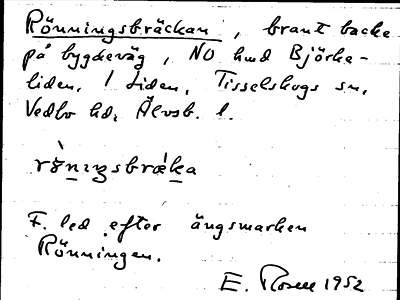 Rönningsbräckan, brant backe
på bygdeväg, NO hmd Björke-
liden, 1 Liden, Tisselskogs sn,
Vedbo hd, Älvsb. l.
rö̀nıŋsbræ̀ka
F. led efter ängsmarken
Rönningen.
E. Rosell 1952